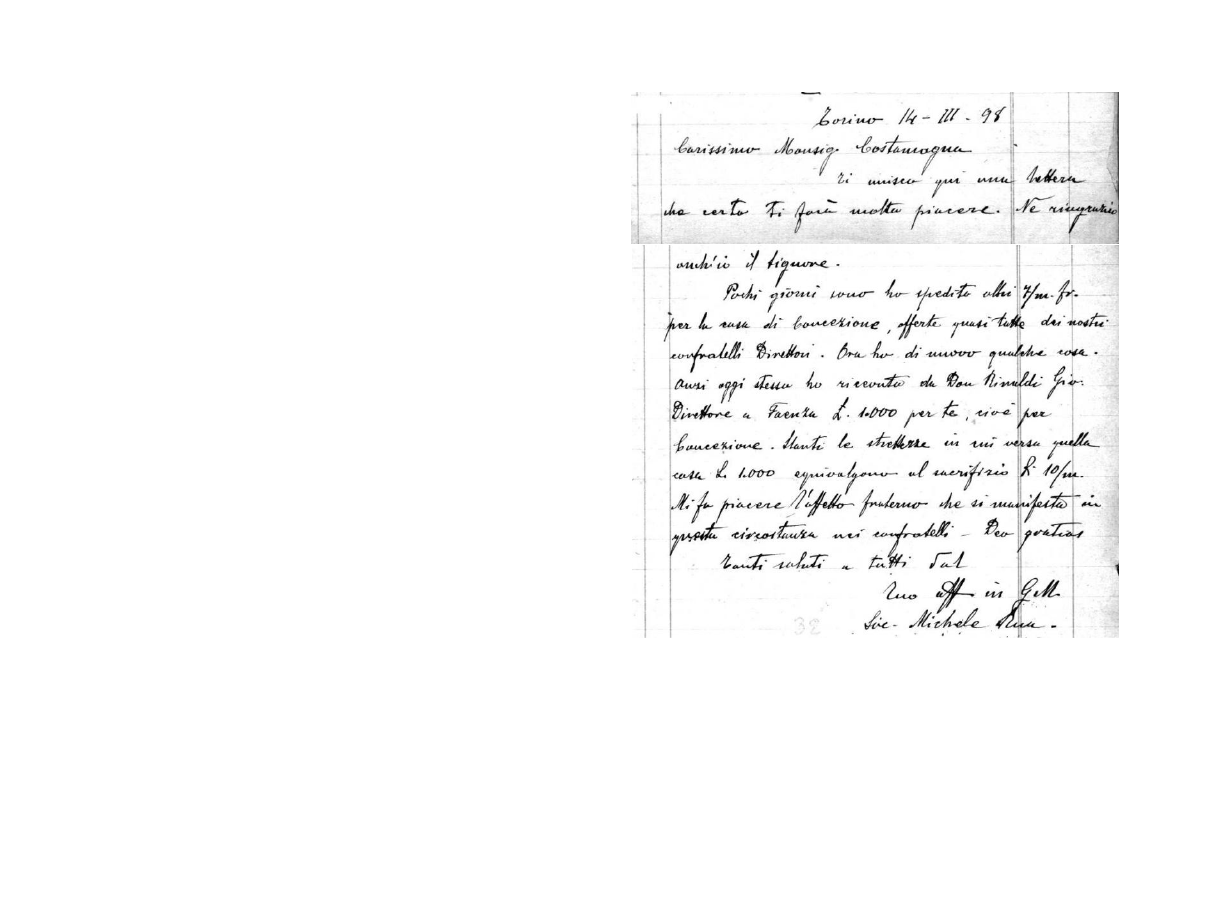 Torino 14 - III - 98
Carissimo Monsig. Costamagna
Ti unisco qui una lettera
che certo ti farà molto piacere. Ne ringrazio
anch'io il Signore.
Pochi giorni sono ho spedito altri 7/m. fr.
per la casa di Concezione, offerte quasi tutte dai nostri
confratelli Direttori. Ora ho di nuovo qualche cosa.
Anzi oggi stesso ho ricevuto da Don Rinaldi Gio.
Direttore a Faenza L. 1.000 per te, cioè per
Concezione. Stanti le strettezze in cui versa quella
casa L. 1.000 equivalgono al sacrifizio L. 10/m.
Mi fa piacere l'affetto fraterno che si manifesta in
questa circostanza nei confratelli - Deo gratias
Tanti saluti a tutti dal
Tuo aff in G.M.
Sac. Michele Rua.
32